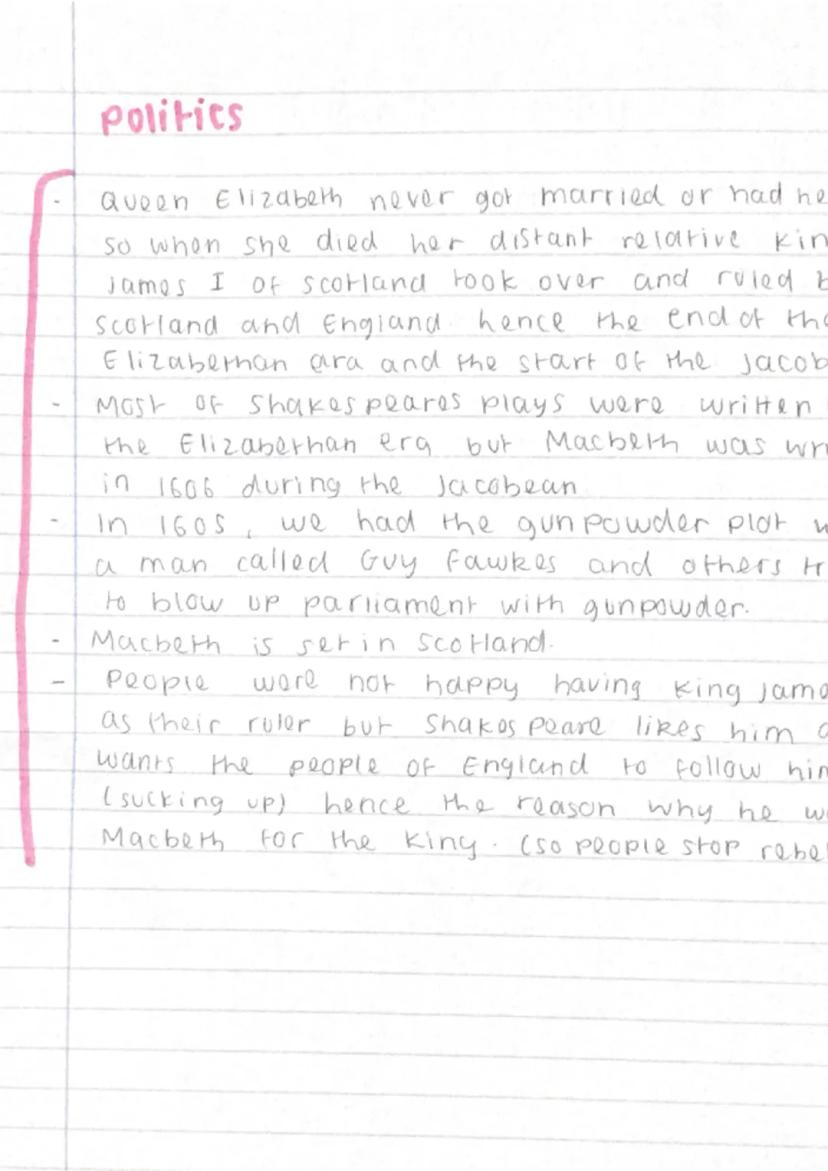 politics
- Queen Elizabeth never got married or had he
so when she died her distant relative kin
James I of Scotland took over and ruled b
Scotland and England. hence the end of the
Elizabethan era and the start of the Jacob
- Most of Shakespeares plays were written
the Elizabethan era but Macbeth was wri
in 1606 during the Jacobean
- In 1605, we had the gunpowder plot w
a man called Guy Fawkes and others tr
to blow up parliament with gunpowder.
- Macbeth is set in Scotland.
- People were not happy having King Jame
as their ruler but Shakespeare likes him a
wants the people of England to follow him
(sucking up) hence the reason why he w
Macbeth for the King. (so people stop rebel